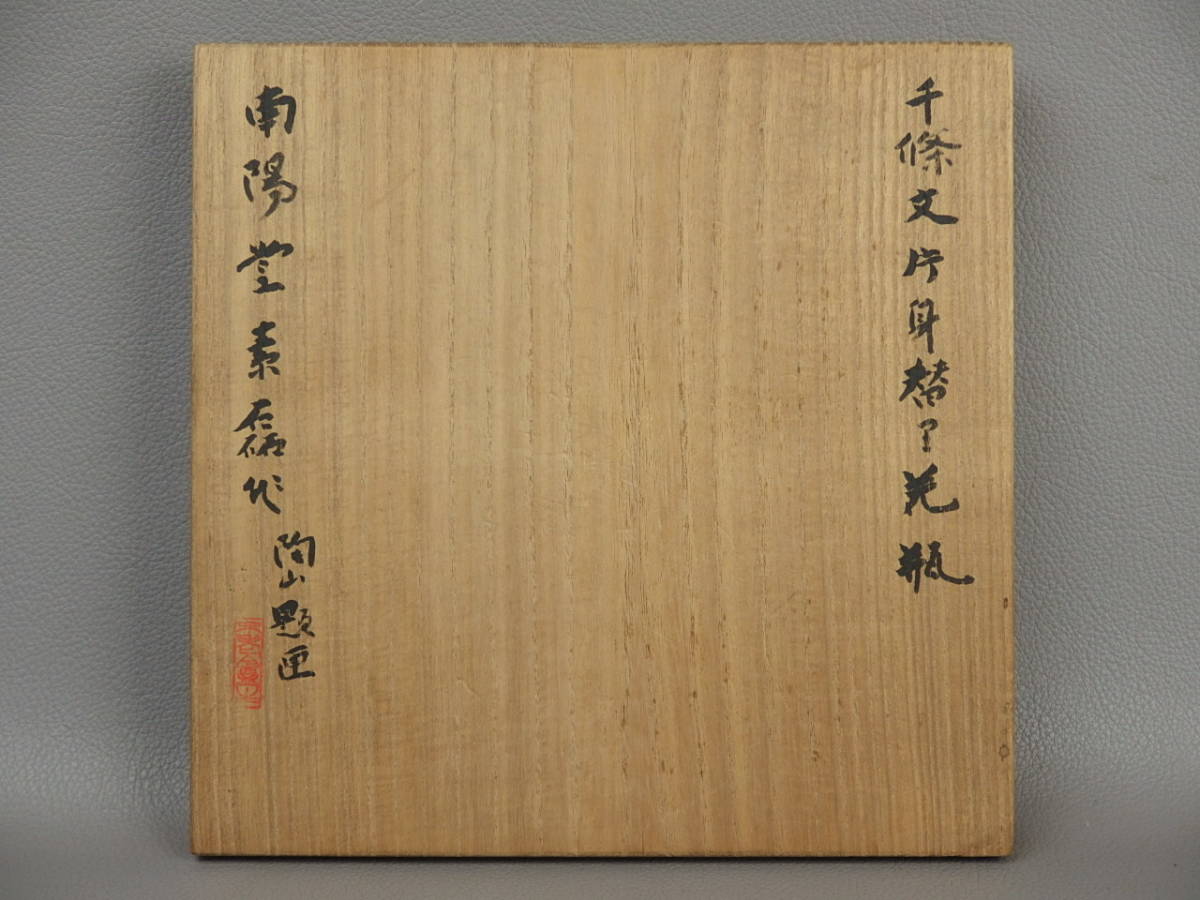 千條文片身替り花瓶
南陽堂素磊作
陶山題匣